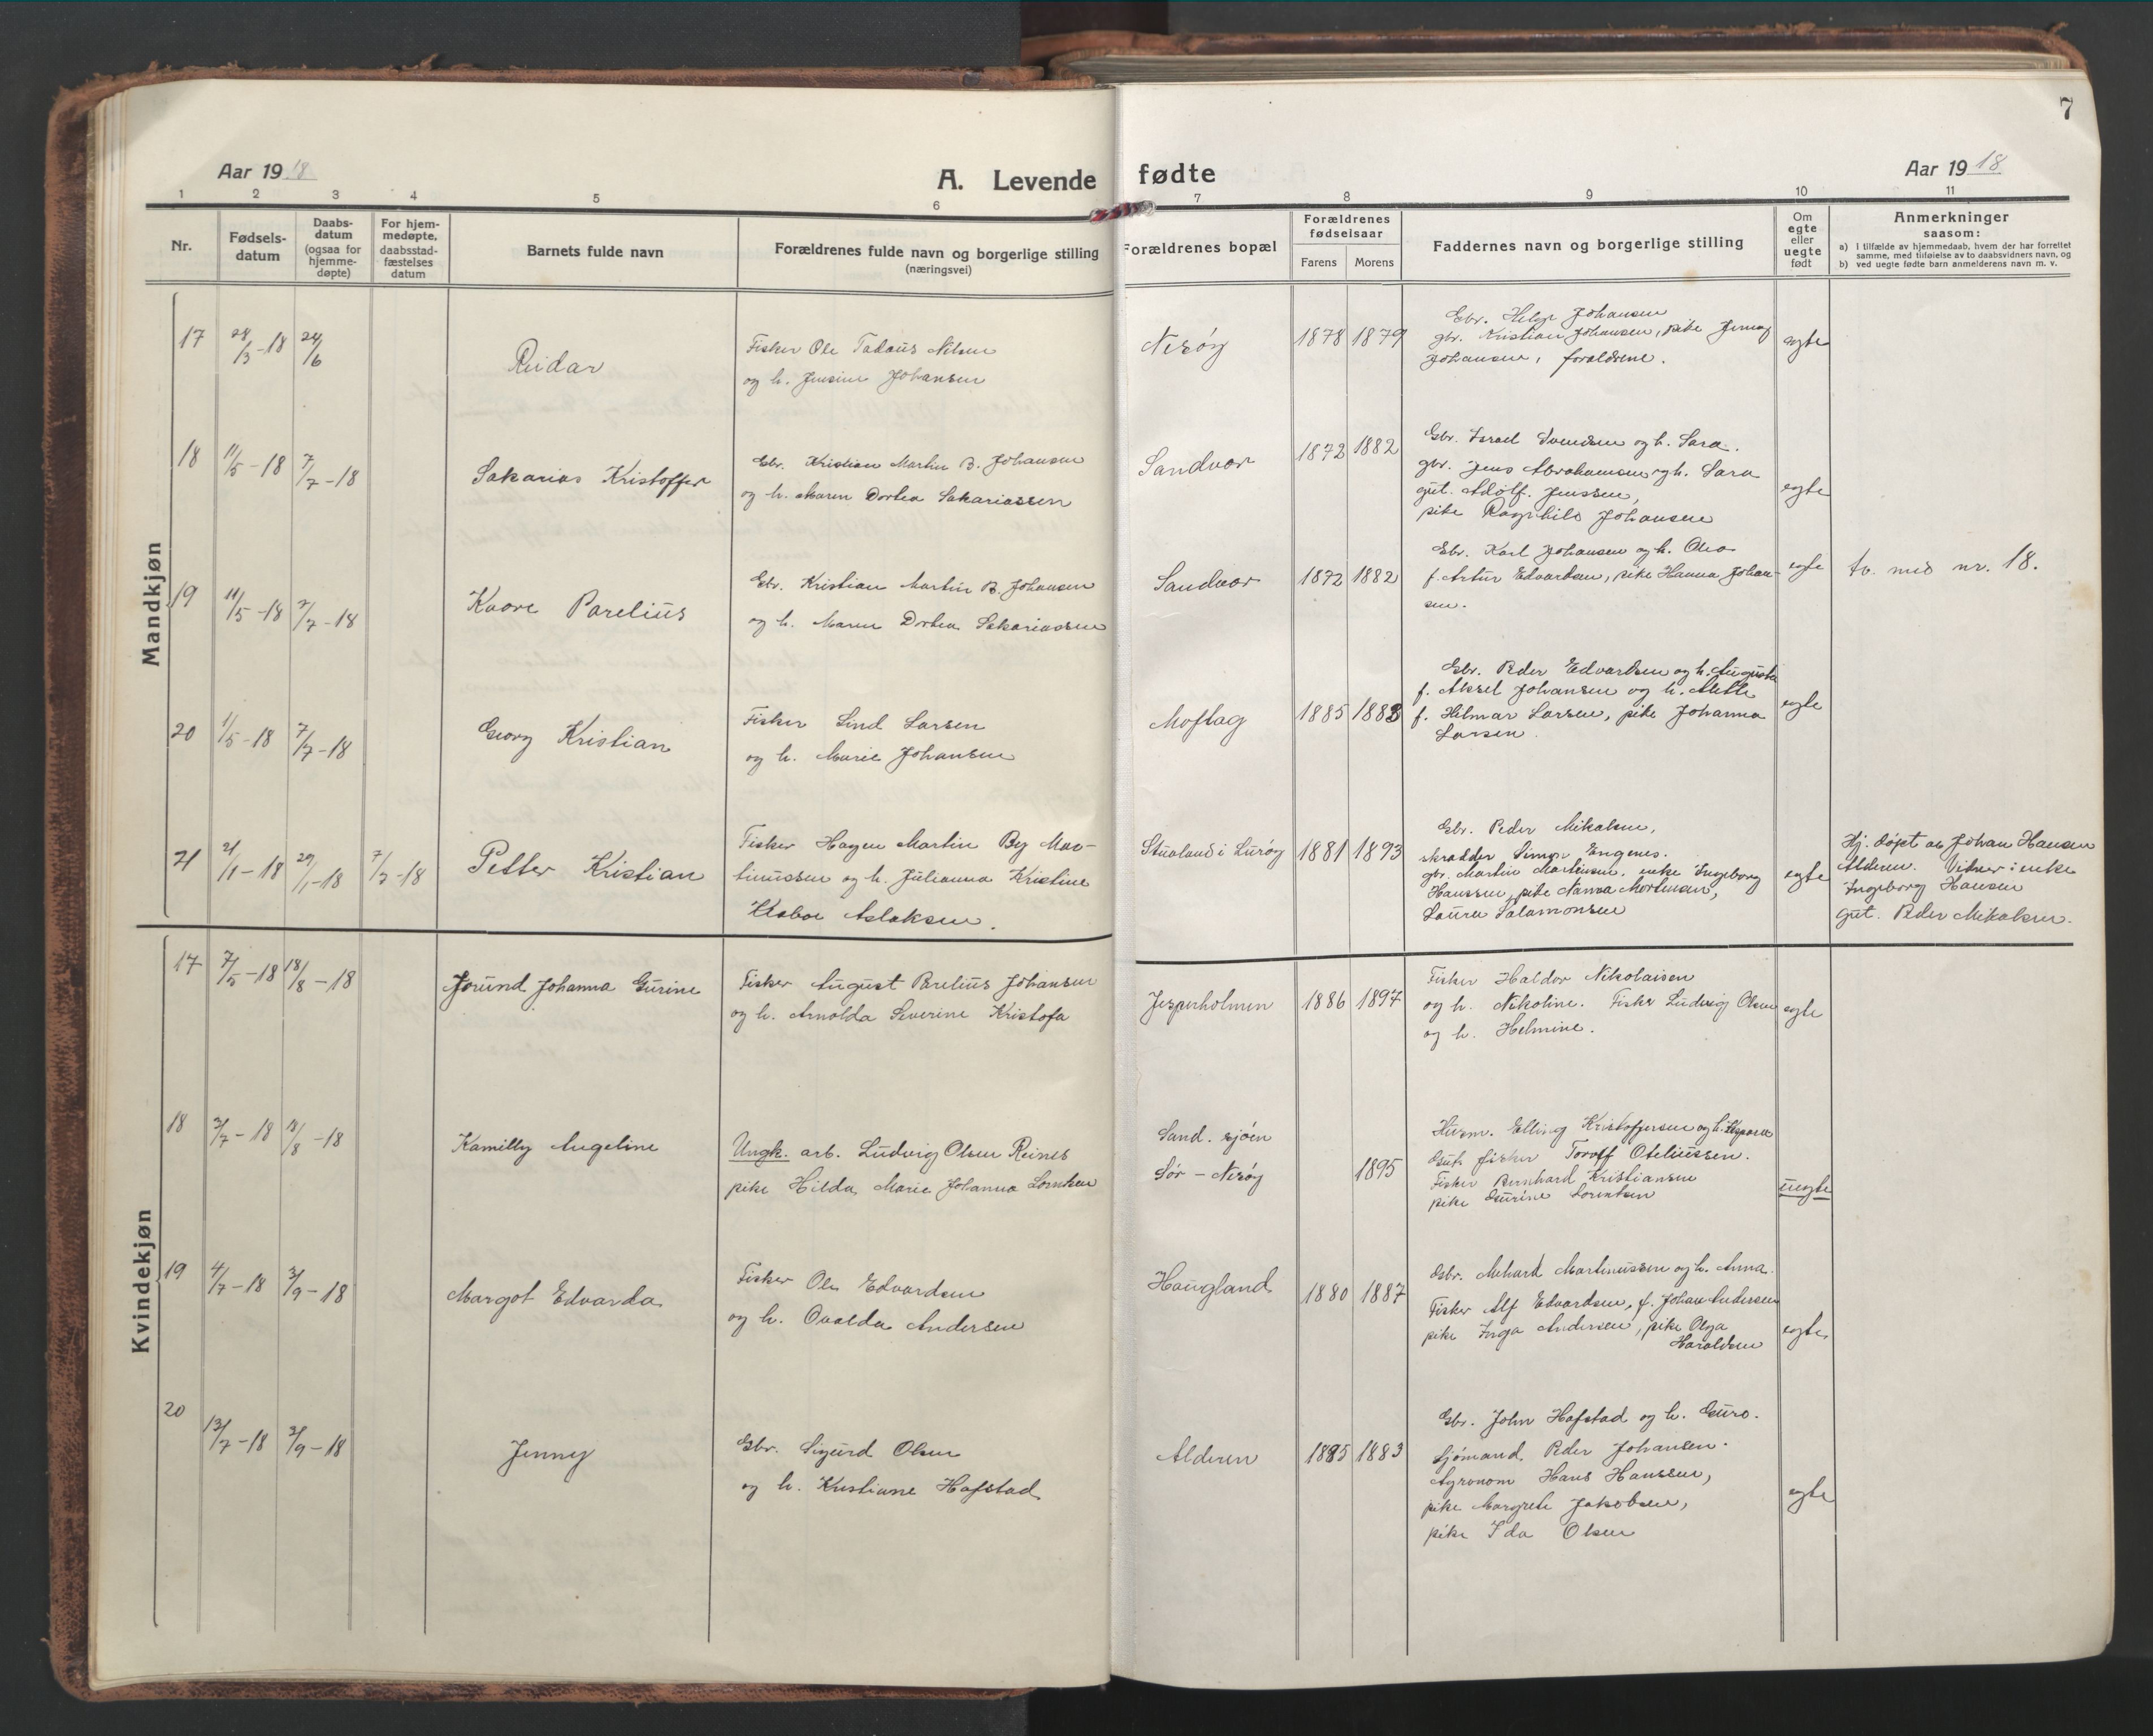 7
Aar 1918
A. Levende fødte
Aar 1918
1 2 3 4 5 6 7 8 9 10 11
Nr.
Fødsels-
datum
Daabs-
datum
(ogsaa for
hjemme-
døpte)
For hjem-
medøpte,
daabsstad-
fæstelses
datum
Barnets fulde navn
Forældrenes fulde navn og borgerlige stilling
(næringsvei)
Forældrenes bopæl
Forældrenes
fødselsaar
Farens
Morens
Faddernes navn og borgerlige stilling
Om
egte
eller
uegte
født
Anmerkninger
saasom:
a) I tilfælde av hjemmedaab, hvem der har forrettet
samme, med tilføielse av to daabsvidners navn, og
b) ved uegte fødte barn anmelderens navn m. v.
Mandkjøn
17
24/3-18
24/6
Reidar
Fisker Ole Tadøus Nilsen
og h. Jensine Johansen
Nesøy
1878
1879
Gbr. Helge Johansen
gbr. Kristian Johansen, pike Jenny
Johansen, forældrene.
egte
18
11/5-18
7/7-18
Sakarias Kristoffer
Gbr. Kristian Martin B. Johansen
og h. Maren Dortea Sakariassen
Sandvær
1872
1882
Gbr. Israel Svendsen og h. Sara.
gbr. Jens Abrahamsen og h. Sara
gut. Adolf. Jenssen,
pike Ragnhild Johansen
egte
19
11/5-18
7/7-18
Kaare Parelius
Gbr. Kristian Martin B. Johansen
og h. Maren Dortea Sakariassen
Sandvær
1872
1882
Gbr. Karl Johansen og h. Olea
f. Artur Edvardsen, pike Hanna Johan-
sen.
egte
tv. med nr. 18.
20
1/5-18
7/7-18
Georg Kristian
Fisker Lind Larsen
og h. Marie Johansen
Moflag
1885
1888
Gbr. Peder Edvardsen og h. Augusta
f. Aksel Johansen og h. Mette
f. Hilmar Larsen, pike Johanna
Larsen.
egte
21
21/1-18
29/1-18
7/7-18
Petter Kristian
Fisker Hagen Martin By Mar-
tinussen og h. Julianna Kristine
Aslaksen.
Stualand i Lurøy
1881
1893
Gbr. Peder Mikalsen,
skrædder Simon Engenes.
gbr. Martin Martinsen, enke Ingeborg
Hanssen, pike Nanna Mortensen,
Laura Salamonsen
egte
Hj. døpt av Johan Hansen
Alderen. Vitner: enke
Ingeborg Hansen
gut. Peder Mikalsen.
Kvindekjøn
17
7/5-18
18/8-18
Jorund Johanna Gurine
Fisker August Parelius Johansen
og h. Arnolda Severine Kristofa
Jesperholmen
1886
1897
Fisker Haldor Nikolaisen
og h. Nikoline. Fisker Ludvig Olsen
og h. Helmine.
egte
18
2/7-18
18/8-18
Kamilly Angeline
Ungk. arb. Ludvig Olsen Reines
pike Hilda Marie Johanna Lorntsen
Sand.sjøen
Sør-Nesøy
1895
Husm. Elling Kristoffersen og h.
Gut fisker Toralf Oteliussen.
Fisker Bernhard Kristiansen
pike Gurine Lorentsen
uegte
19
4/7-18
3/9-18
Margot Edvarda
Fisker Ole Edvardsen
og h. Ovalda Andersen
Haugland
1880
1887
Gbr. Mehard Martinussen og h. Anna.
Fisker Alf Edvardsen, f. Johan Andersen
pike Inga Andersen, pike Olga
Haraldsen
egte
20
13/7-18
3/9-18
Jenny
Gbr. Sigurd Olsen
og h. Kristiane Hafstad
Alderen
1885
1883
Gbr. John Hafstad og h. Guro.
Sjømand Peder Johansen.
Agronom Hans Hanssen,
pike Margrete Jakobsen,
pike Ida Olsen
egte